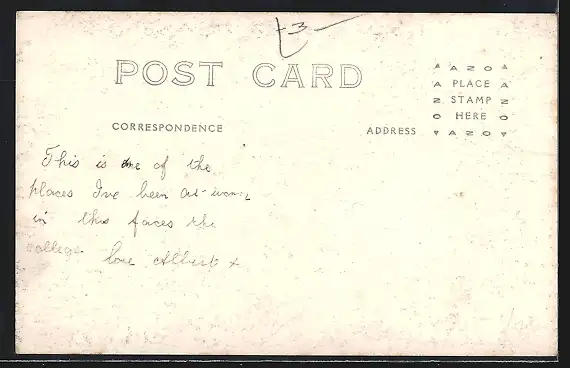 3
POST CARD
A Z O
A PLACE A
Z STAMP Z
O HERE O
A Z O
CORRESPONDENCE
ADDRESS
This is one of the
places I've been at
in this faces the
college love Albert x